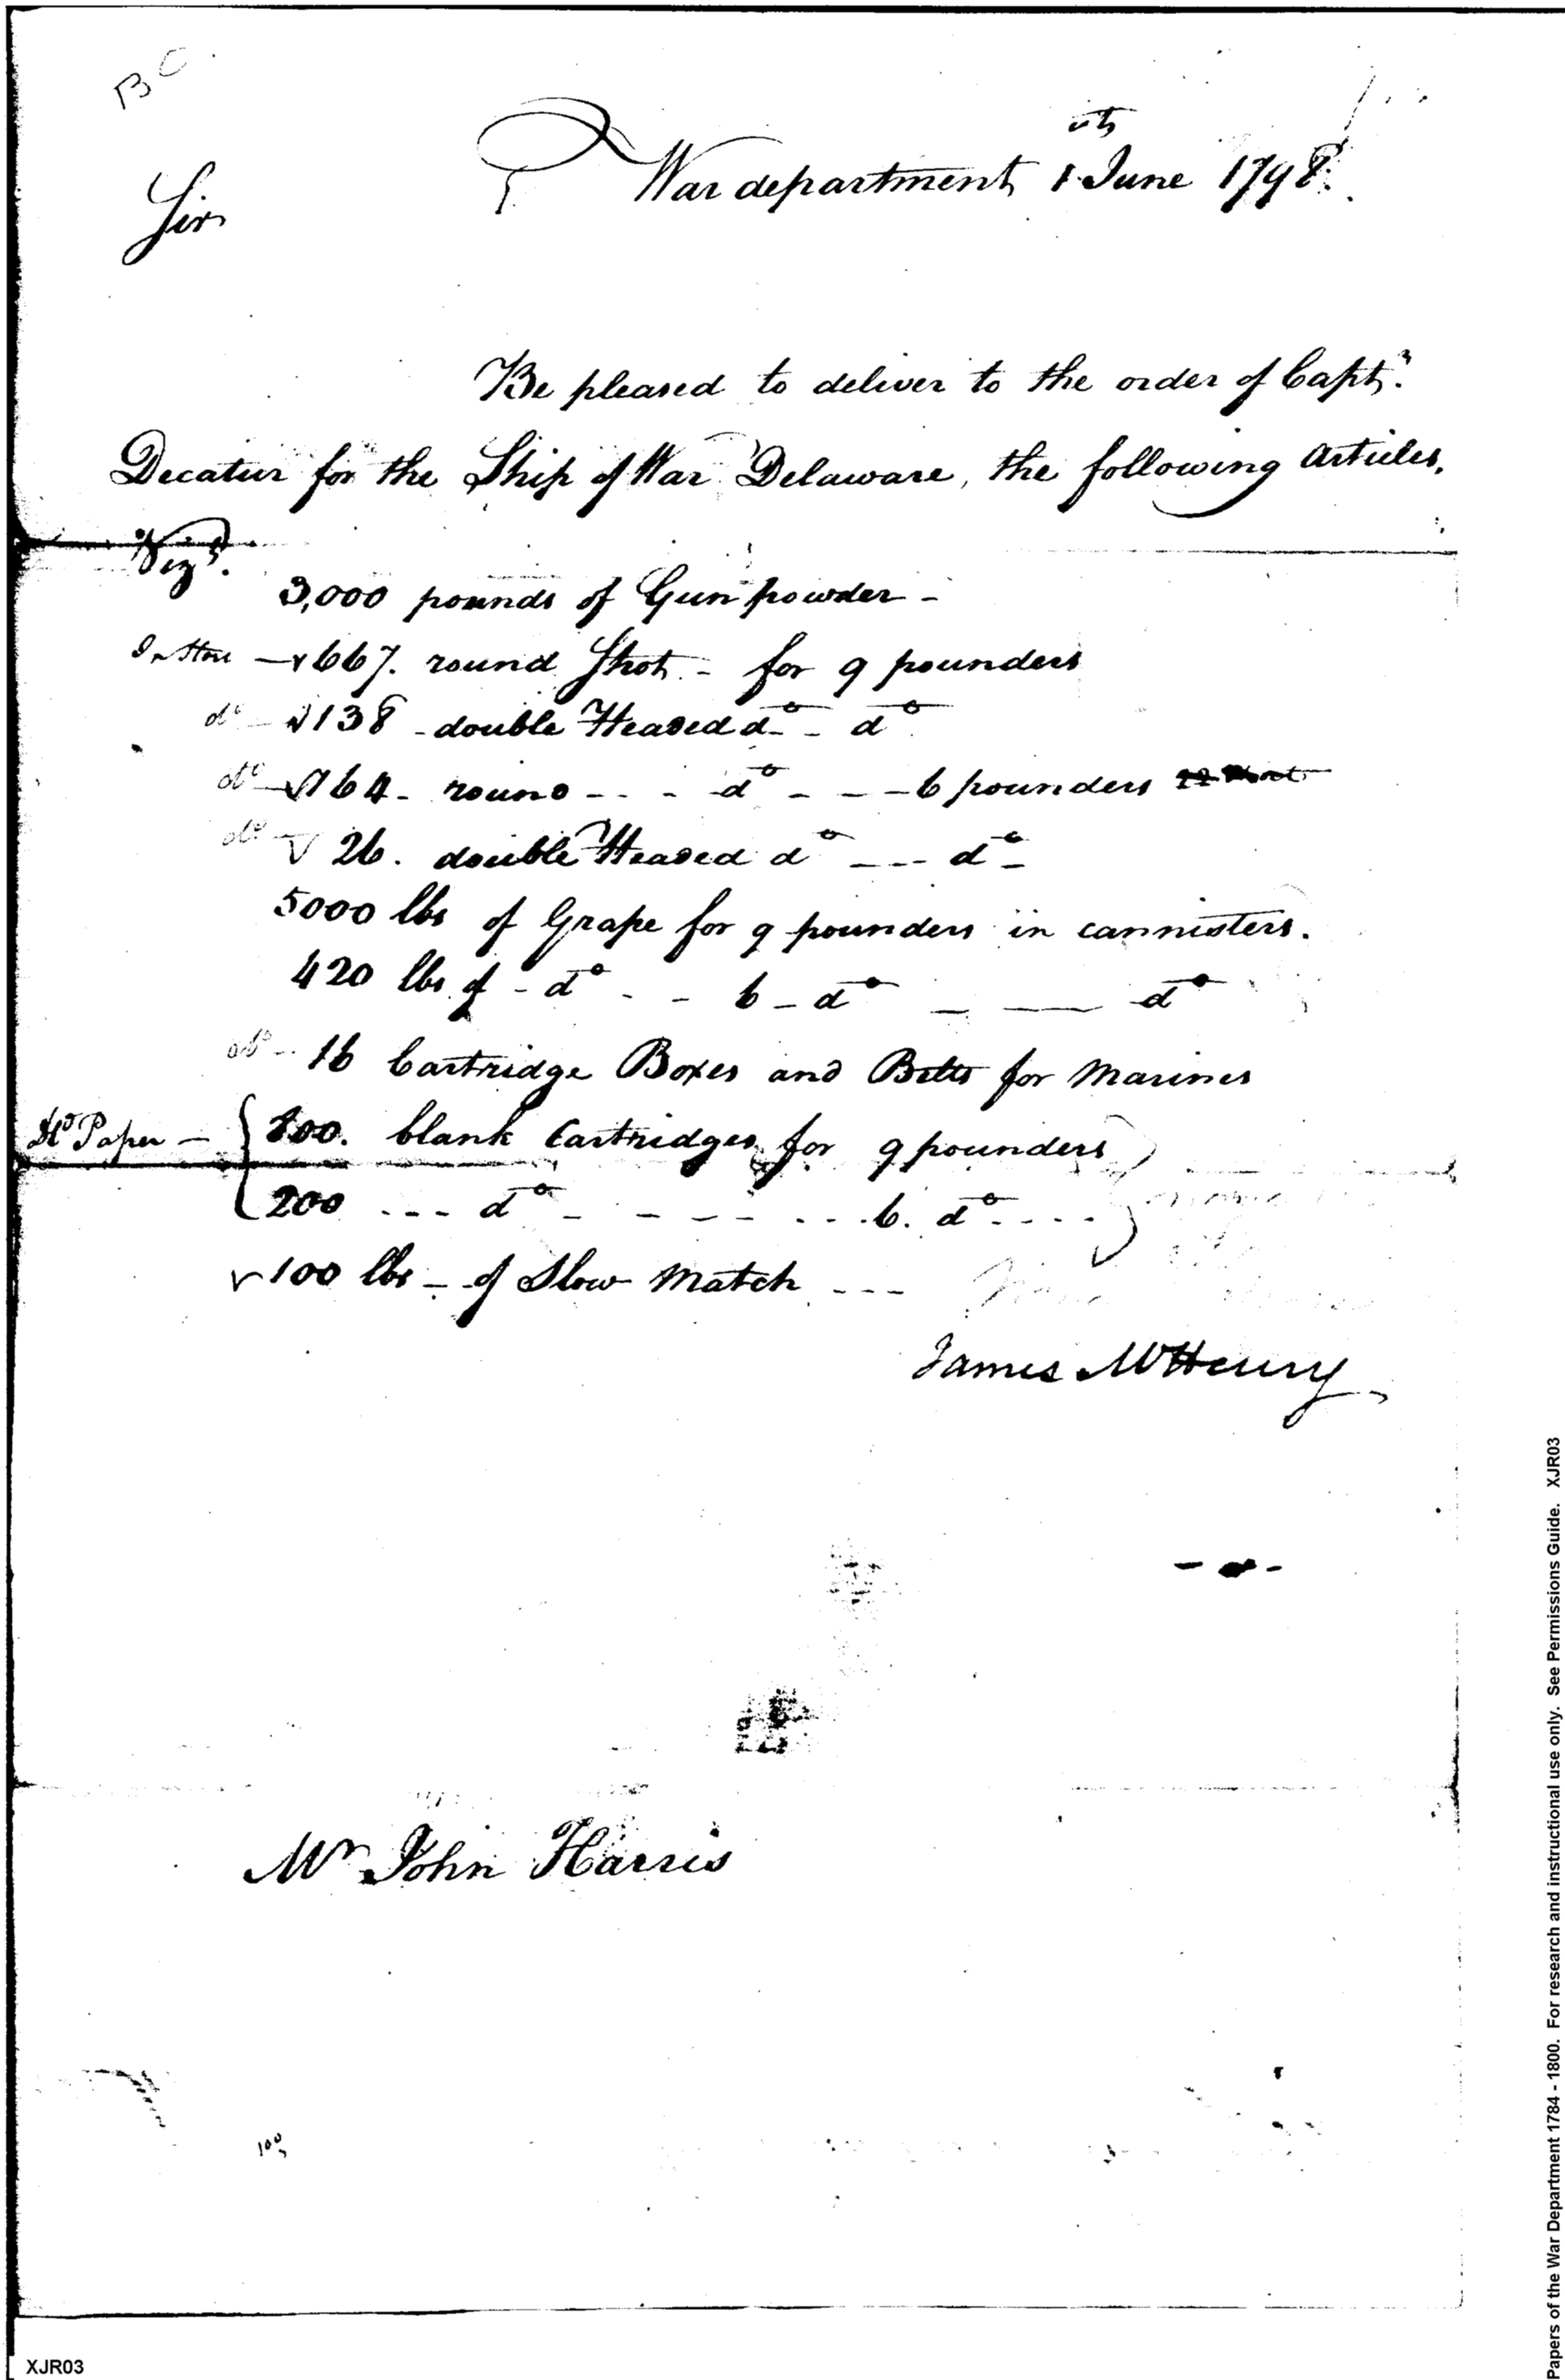 BC
War department 1 June 1798.
Sir
Be pleased to deliver to the order of Capt.
Decatur for the Ship of War Delaware, the following articles,
Vizt.
3,000 pounds of Gun powder -
In Store - 667. round Shot - for 9 pounders
do - 138 - double Headed do - do
do - 164 - round - - - do - - - 6 pounders
do 26. double Headed do --- do -
5000 lbs of Grape for 9 pounders in cannisters.
420 lbs of - do - - 6 - do - — do
do - 16 Cartridge Boxes and Belts for Marines
Paper - 800. blank Cartridges for 9 pounders
200 --- do - - - - - - - 6. do - - - -
100 lbs - of Slow Match ---
James McHenry
Mr John Harris
100
XJR03
Papers of the War Department 1784 - 1800. For research and instructional use only. See Permissions Guide. XJR03